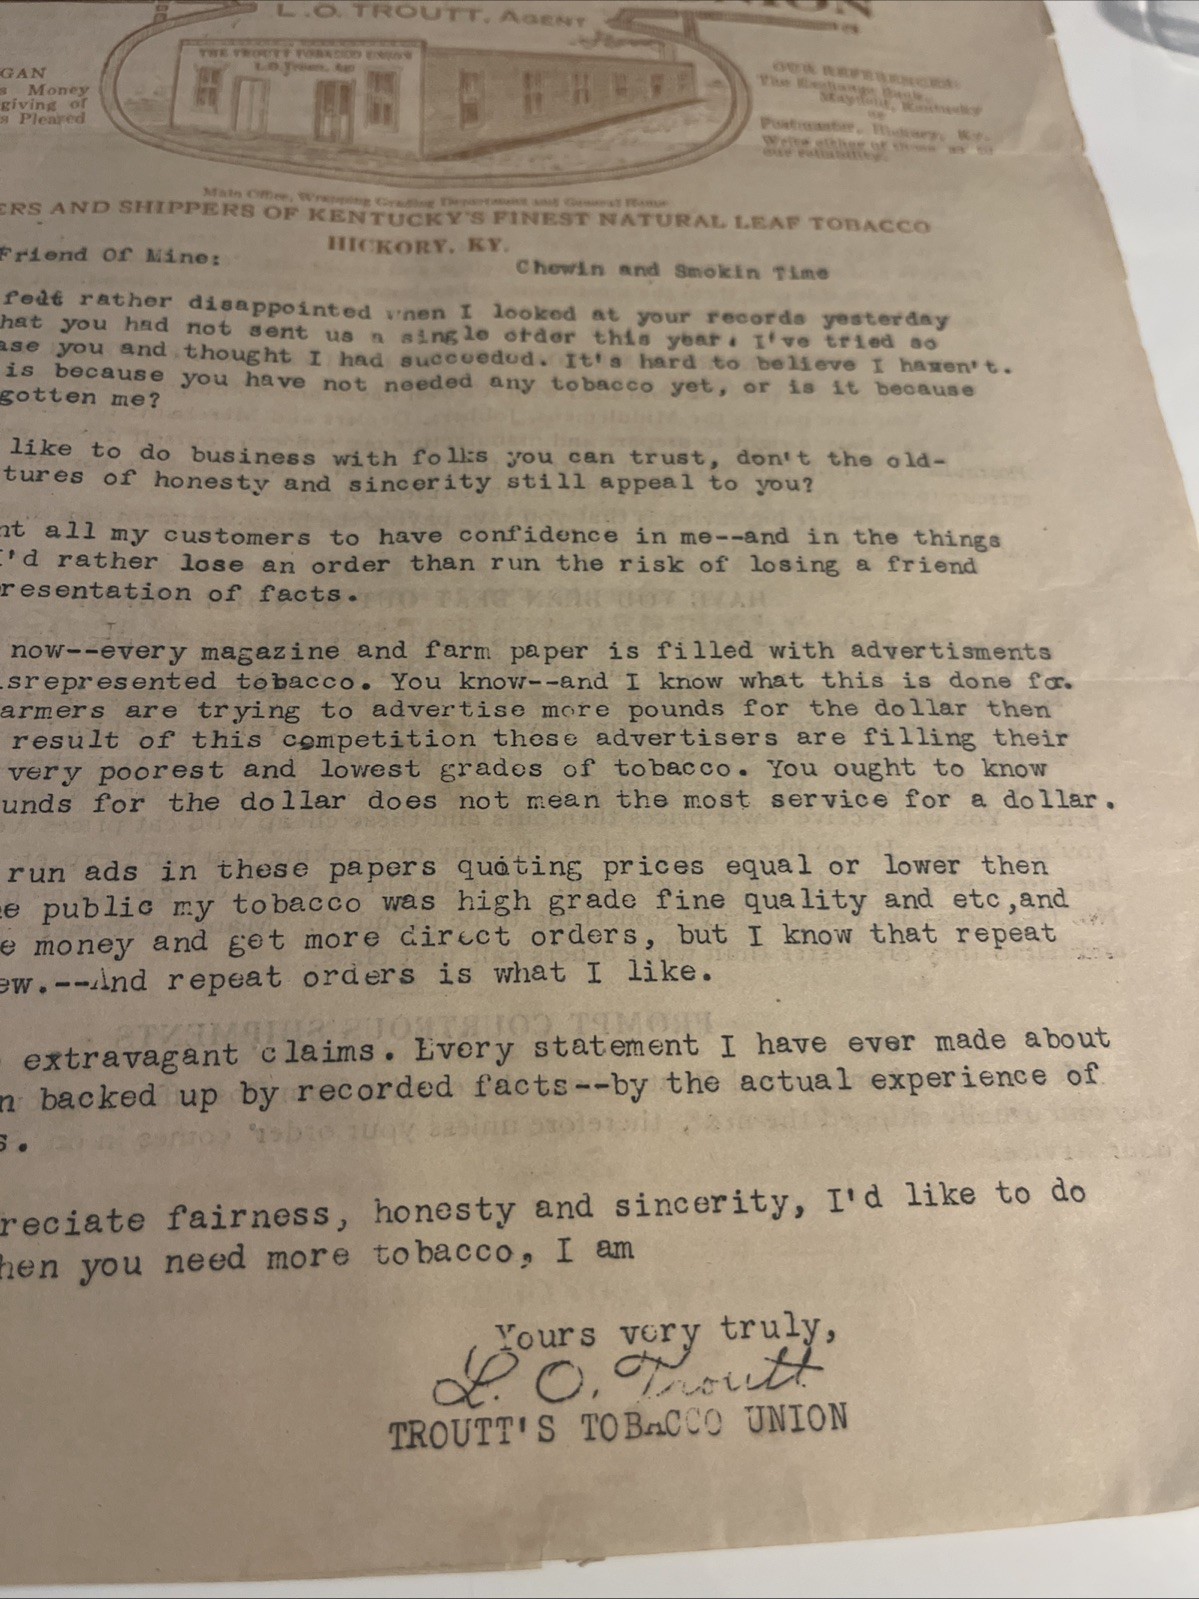 UNION
L.O. TROUTT, AGENT
THE TROUTT TOBACCO UNION
L.O. Troutt, Agt
GAN
s Money
giving of
s Pleared
OUR REFERENCES:
The Exchange Bank,
Mayfield, Kentucky
or
Postmaster, Hickory, Ky.
Write either of these as to
our reliability.
Main Office, Wrapping Grading Department and General Home
ERS AND SHIPPERS OF KENTUCKY'S FINEST NATURAL LEAF TOBACCO
HICKORY, KY.
Friend Of Mine:
Chewin and Smokin Time
felt rather disappointed when I looked at your records yesterday
hat you had not sent us a single order this year. I've tried so
ase you and thought I had succeeded. It's hard to believe I haven't.
is because you have not needed any tobacco yet, or is it because
gotten me?
like to do business with folks you can trust, don't the old-
tures of honesty and sincerity still appeal to you?
nt all my customers to have confidence in me--and in the things
I'd rather lose an order than run the risk of losing a friend
resentation of facts.
now--every magazine and farm paper is filled with advertisments
isrepresented tobacco. You know--and I know what this is done for.
armers are trying to advertise more pounds for the dollar then
result of this competition these advertisers are filling their
very poorest and lowest grades of tobacco. You ought to know
unds for the dollar does not mean the most service for a dollar.
run ads in these papers quoting prices equal or lower then
e public my tobacco was high grade fine quality and etc,and
e money and get more direct orders, but I know that repeat
ew.--And repeat orders is what I like.
extravagant claims. Every statement I have ever made about
n backed up by recorded facts--by the actual experience of
s.
reciate fairness, honesty and sincerity, I'd like to do
hen you need more tobacco, I am
Yours very truly,
L. O. Troutt
TROUTT'S TOBACCO UNION